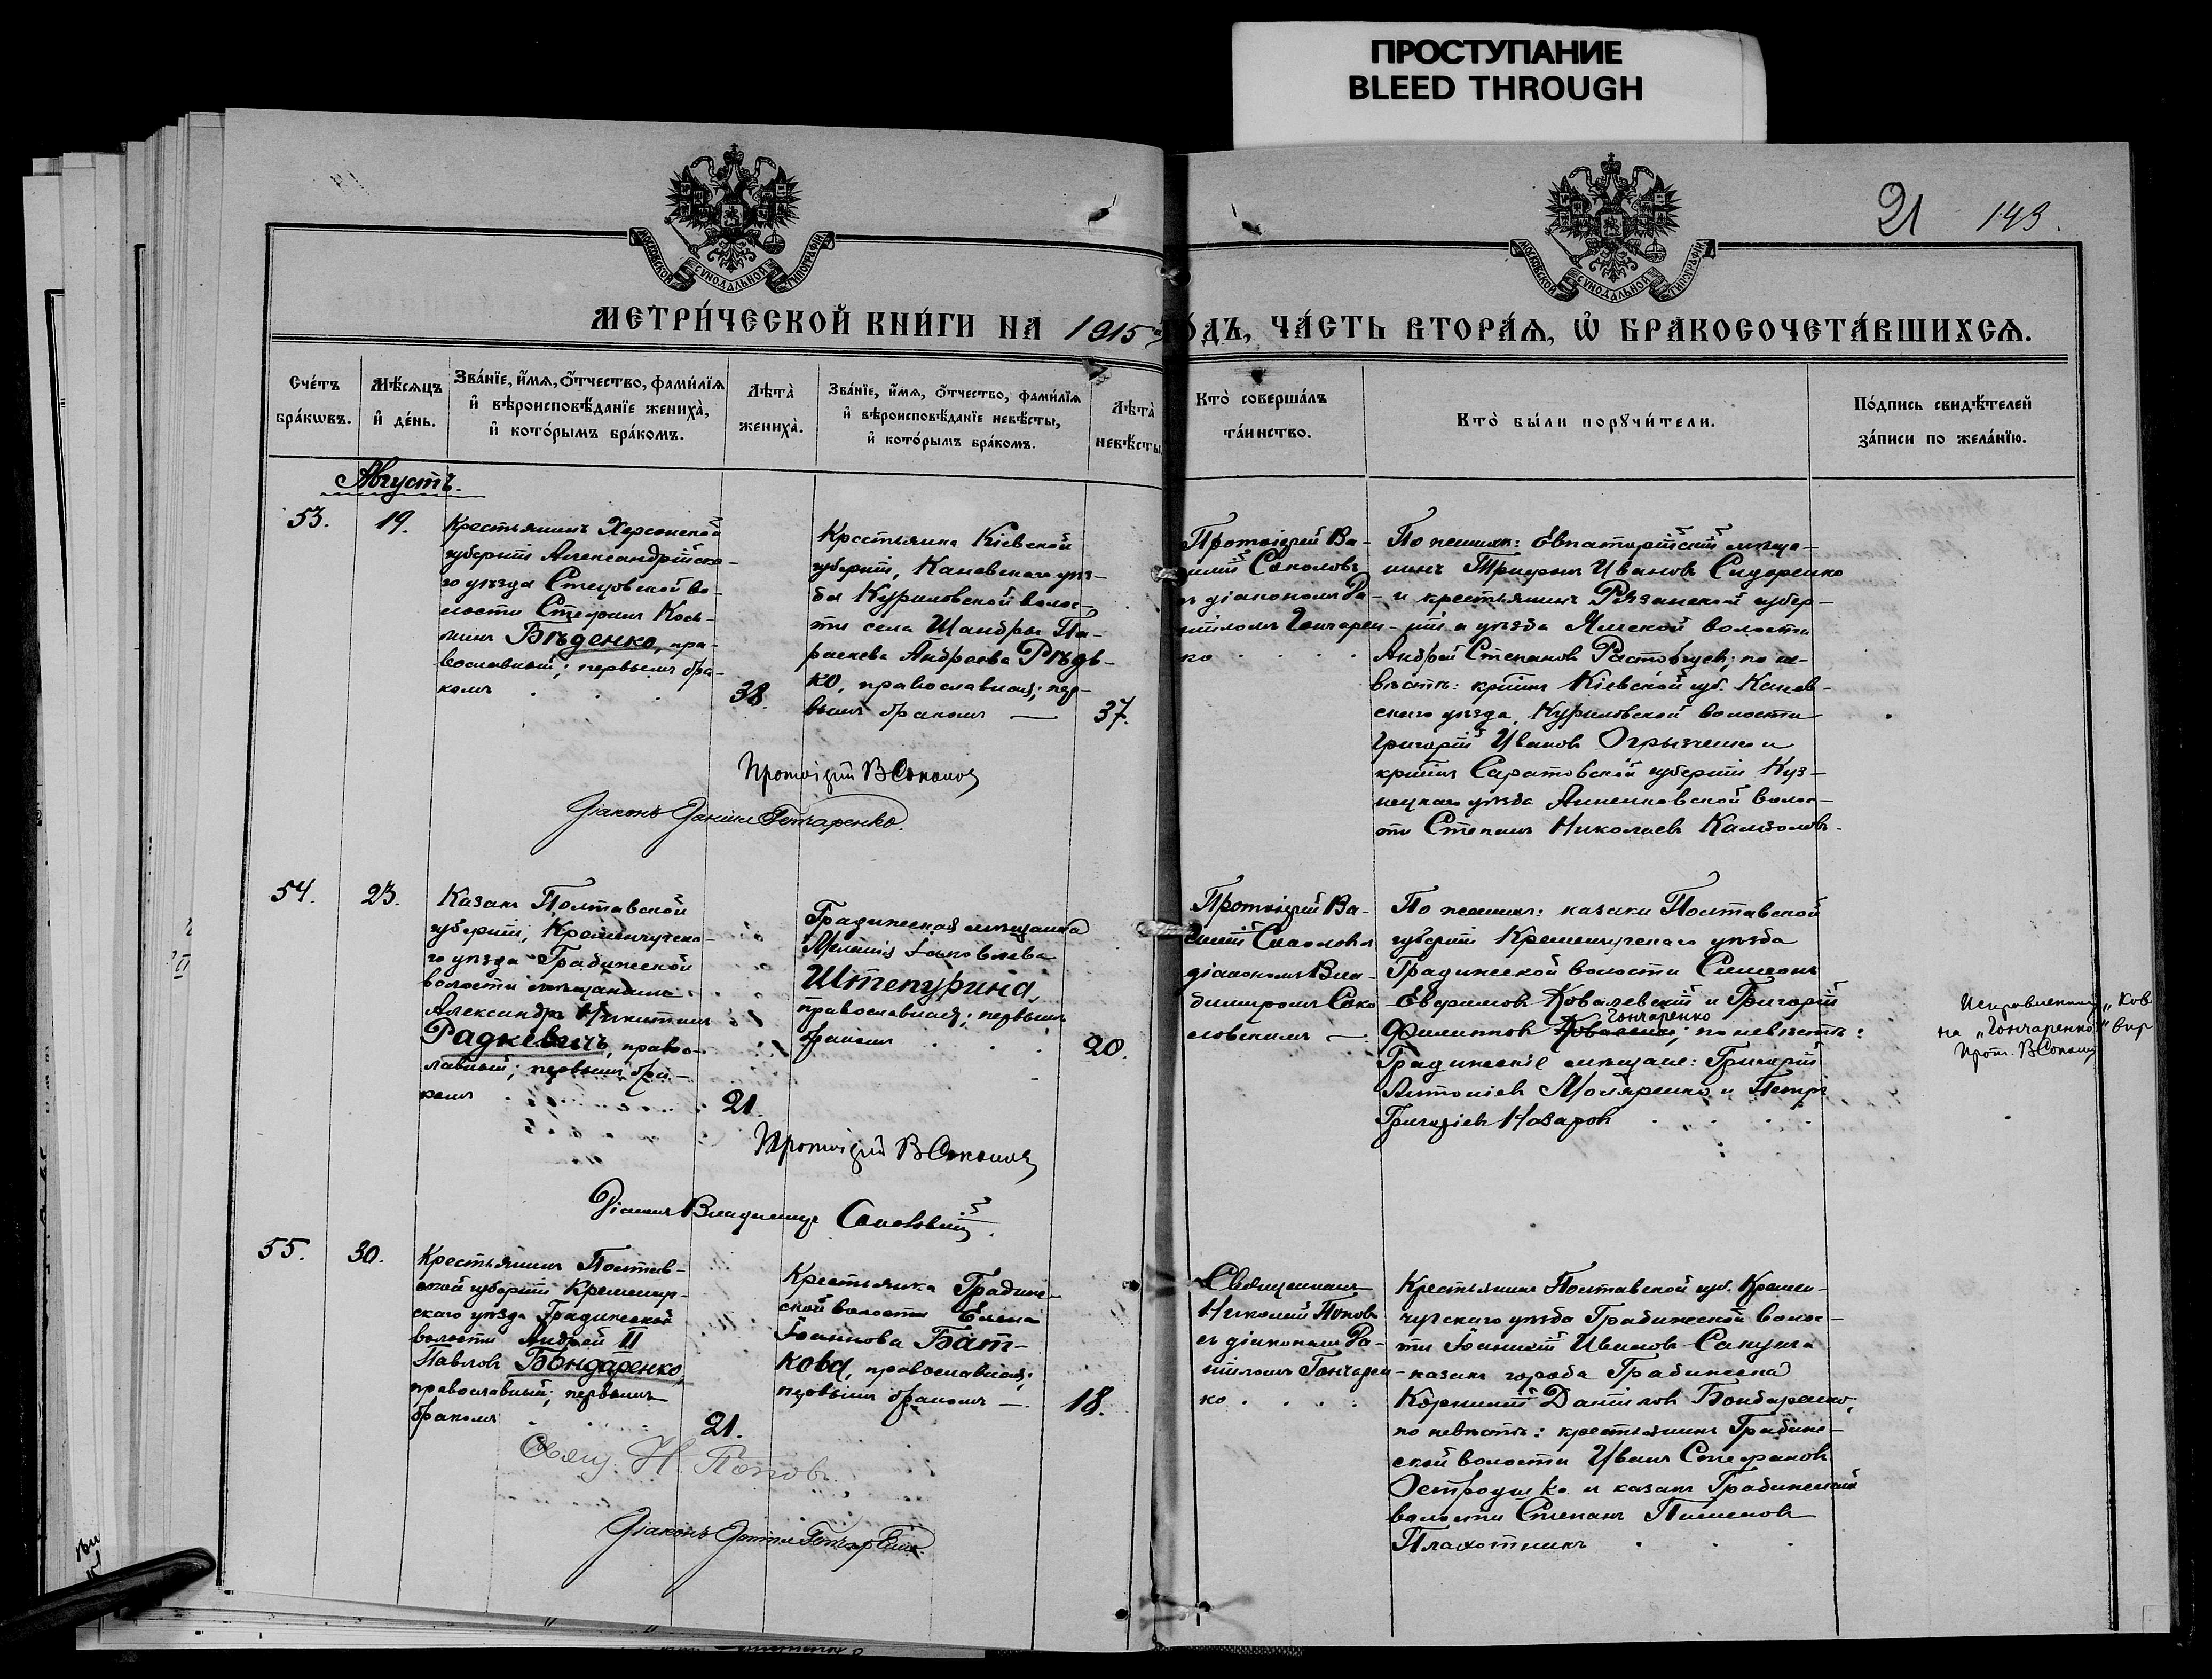 ПРОСТУПАНИЕ
BLEED THROUGH
21 143.
МОСКОВСКОЙ СѴНОДАЛЬНОЙ ТИПОГРАФІИ
МОСКОВСКОЙ СѴНОДАЛЬНОЙ ТИПОГРАФІИ
МЕТРИ́ЧЕСКОЙ КНИ́ГИ НА 1915 ГО́ДЪ, ЧА́СТЬ ВТОРА́Ѧ, Ѡ҆ БРАКОСОЧЕТА́ВШИХСѦ.
Сче́тъ
бра́кѡвъ.
Мѣ́сѧцъ
и҆ де́нь.
Зва́нїе, и҆́мѧ, ѻ҆́тчество, фами́лїѧ
и҆ вѣроисповѣ́данїе жениха̀,
и҆ кото́рымъ бра́комъ.
Лѣта̀
жениха̀.
Зва́нїе, и҆́мѧ, ѻ҆́тчество, фами́лїѧ
и҆ вѣроисповѣ́данїе невѣ́сты,
и҆ кото́рымъ бра́комъ.
Лѣта̀
невѣ́сты.
Кто̀ соверша́лъ
та́инство.
Кто̀ бы́ли порꙋчи́тели.
По́дпись свидѣ́телей
за́писи по жела́нїю.
Августъ.
53.
19.
Крестьянинъ Херсонской
губерніи Александрійска-
го уѣзда Стецовской во-
лости Стефанъ Кось-
минъ Бѣденко, пра-
вославный; первымъ бра-
комъ
38.
Крестьянка Кіевской
губерніи, Каневскаго уѣз-
да Куриловской волос-
ти села Шандры Па-
раскева Андреева Рѣдь-
ко, православная; пер-
вымъ бракомъ —
37.
Протоіерей Ва-
силій Соколовъ
съ діакономъ Да-
ніиломъ Гончарен-
ко
По женихѣ: Евпаторійскій мѣща-
нинъ Трифонъ Ивановъ Сидоренко
и крестьянинъ Рязанской губер-
ніи и уѣзда Ямской волости
Андрей Степановъ Растовцев; по не-
вѣстѣ: кр-нинъ Кіевской губ. Канев-
скаго уѣзда, Куриловской волости
Григорій Ивановъ Огрызченко и
кр-нинъ Саратовской губерніи Куз-
нецкаго уѣзда Анненковской волос-
ти Степанъ Николаевъ Камзоловъ.
Протоіерей В Соколов
Діаконъ Даніил Гончаренко.
54.
23.
Казакъ Полтавской
губерніи, Кременчугска-
го уѣзда Градижской
волости
Александръ Никитинъ
Радкевичъ, правос-
лавный; первымъ бра-
комъ
21.
Градижская мѣщанка
Іаковлева
Штепурина,
православная; первымъ
бракомъ
20.
Протоіерей Ва-
силій Соколовъ
діакономъ Вла-
диміромъ Соко
ловскимъ —
По женихѣ: казаки Полтавской
губерніи Кременчугскаго уѣзда
Градижской волости Симеонъ
Евфимовъ Ковалевскій и Григорій
Гончаренко
Филипповъ; по невѣстѣ:
Градижскіе мѣщане: Григорій
Антоніев Моляренко и Петръ
Григоріев Назаров
Исправленному „Ков
на „Гончаренко" вѣр
Прот. В Соколов
Протоіерей В Соколов
Діаконъ Владимиръ Соколовскій.
55.
30.
Крестьянинъ Полтав-
ской губерніи Кременчуг-
скаго уѣзда Градижской
волости Андрей II
Павловъ Бондаренко,
православный; первымъ
бракомъ
21.
Крестьянка Градиж-
ской волости Елена
Іоаннова Бат-
кова, православная;
первымъ бракомъ —
18.
Священникъ
Николай Попов
съ діакономъ Да-
ніиломъ Гончарен-
ко
Крестьянинъ Полтавской губ. Кремен-
чугскаго уѣзда Градижской волос-
ти Іоанній Иванов
казакъ города Градижска
Корнилій Даніилов Бондаренко,
по невѣстѣ: крестьянинъ Градиж-
ской волости Иванъ Стефанов
Остроушко и казакъ Градижской
волости Степанъ Пименов
Плахотникъ
Свящ. Н. Попов.
Діаконъ Даніил Гончаренко.